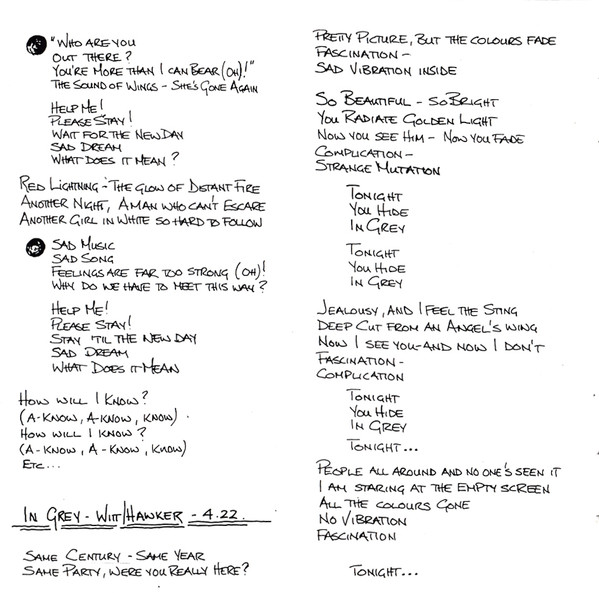 "Who are you
out there?
You're more than I can bear (oh)!"
The sound of wings - She's gone again
Help me!
Please stay!
Wait for the new day
Sad dream
What does it mean?
Red lightning - The glow of distant fire
Another night, a man who can't escape
Another girl in white so hard to follow
Sad music
Sad song
Feelings are far too strong (oh)!
Why do we have to meet this way?
Help me!
Please stay!
Stay 'til the new day
Sad dream
What does it mean
How will I know?
(A-know, a-know, know)
How will I know?
(A-know, a-know, know)
Etc...
In Grey - Witt/Hawker - 4.22.
Same century - same year
Same party, were you really here?
Pretty picture, but the colours fade
Fascination -
Sad vibration inside
So beautiful - so bright
You radiate golden light
Now you see him - now you fade
Complication -
Strange mutation
Tonight
You hide
In grey
Tonight
You hide
In grey
Jealousy, and I feel the sting
Deep cut from an angel's wing
Now I see you - and now I don't
Fascination -
Complication
Tonight
You hide
In grey
Tonight...
People all around and no one's seen it
I am staring at the empty screen
All the colours gone
No vibration
Fascination
Tonight...